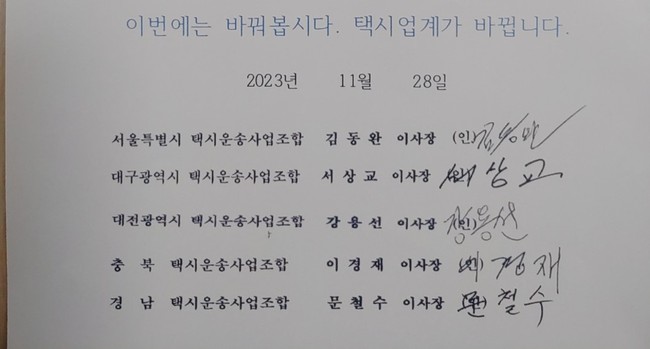 이번에는 바꿔봅시다. 택시업계가 바뀝니다.
2023년 11월 28일
서울특별시 택시운송사업조합 김 동 완 이사장 (인) 김동완
대구광역시 택시운송사업조합 서 상 교 이사장 서상교
대전광역시 택시운송사업조합 강 용 선 이사장 (인) 강용선
충 북 택시운송사업조합 이 경 재 이사장 (인) 이경재
경 남 택시운송사업조합 문 철 수 이사장 문철수